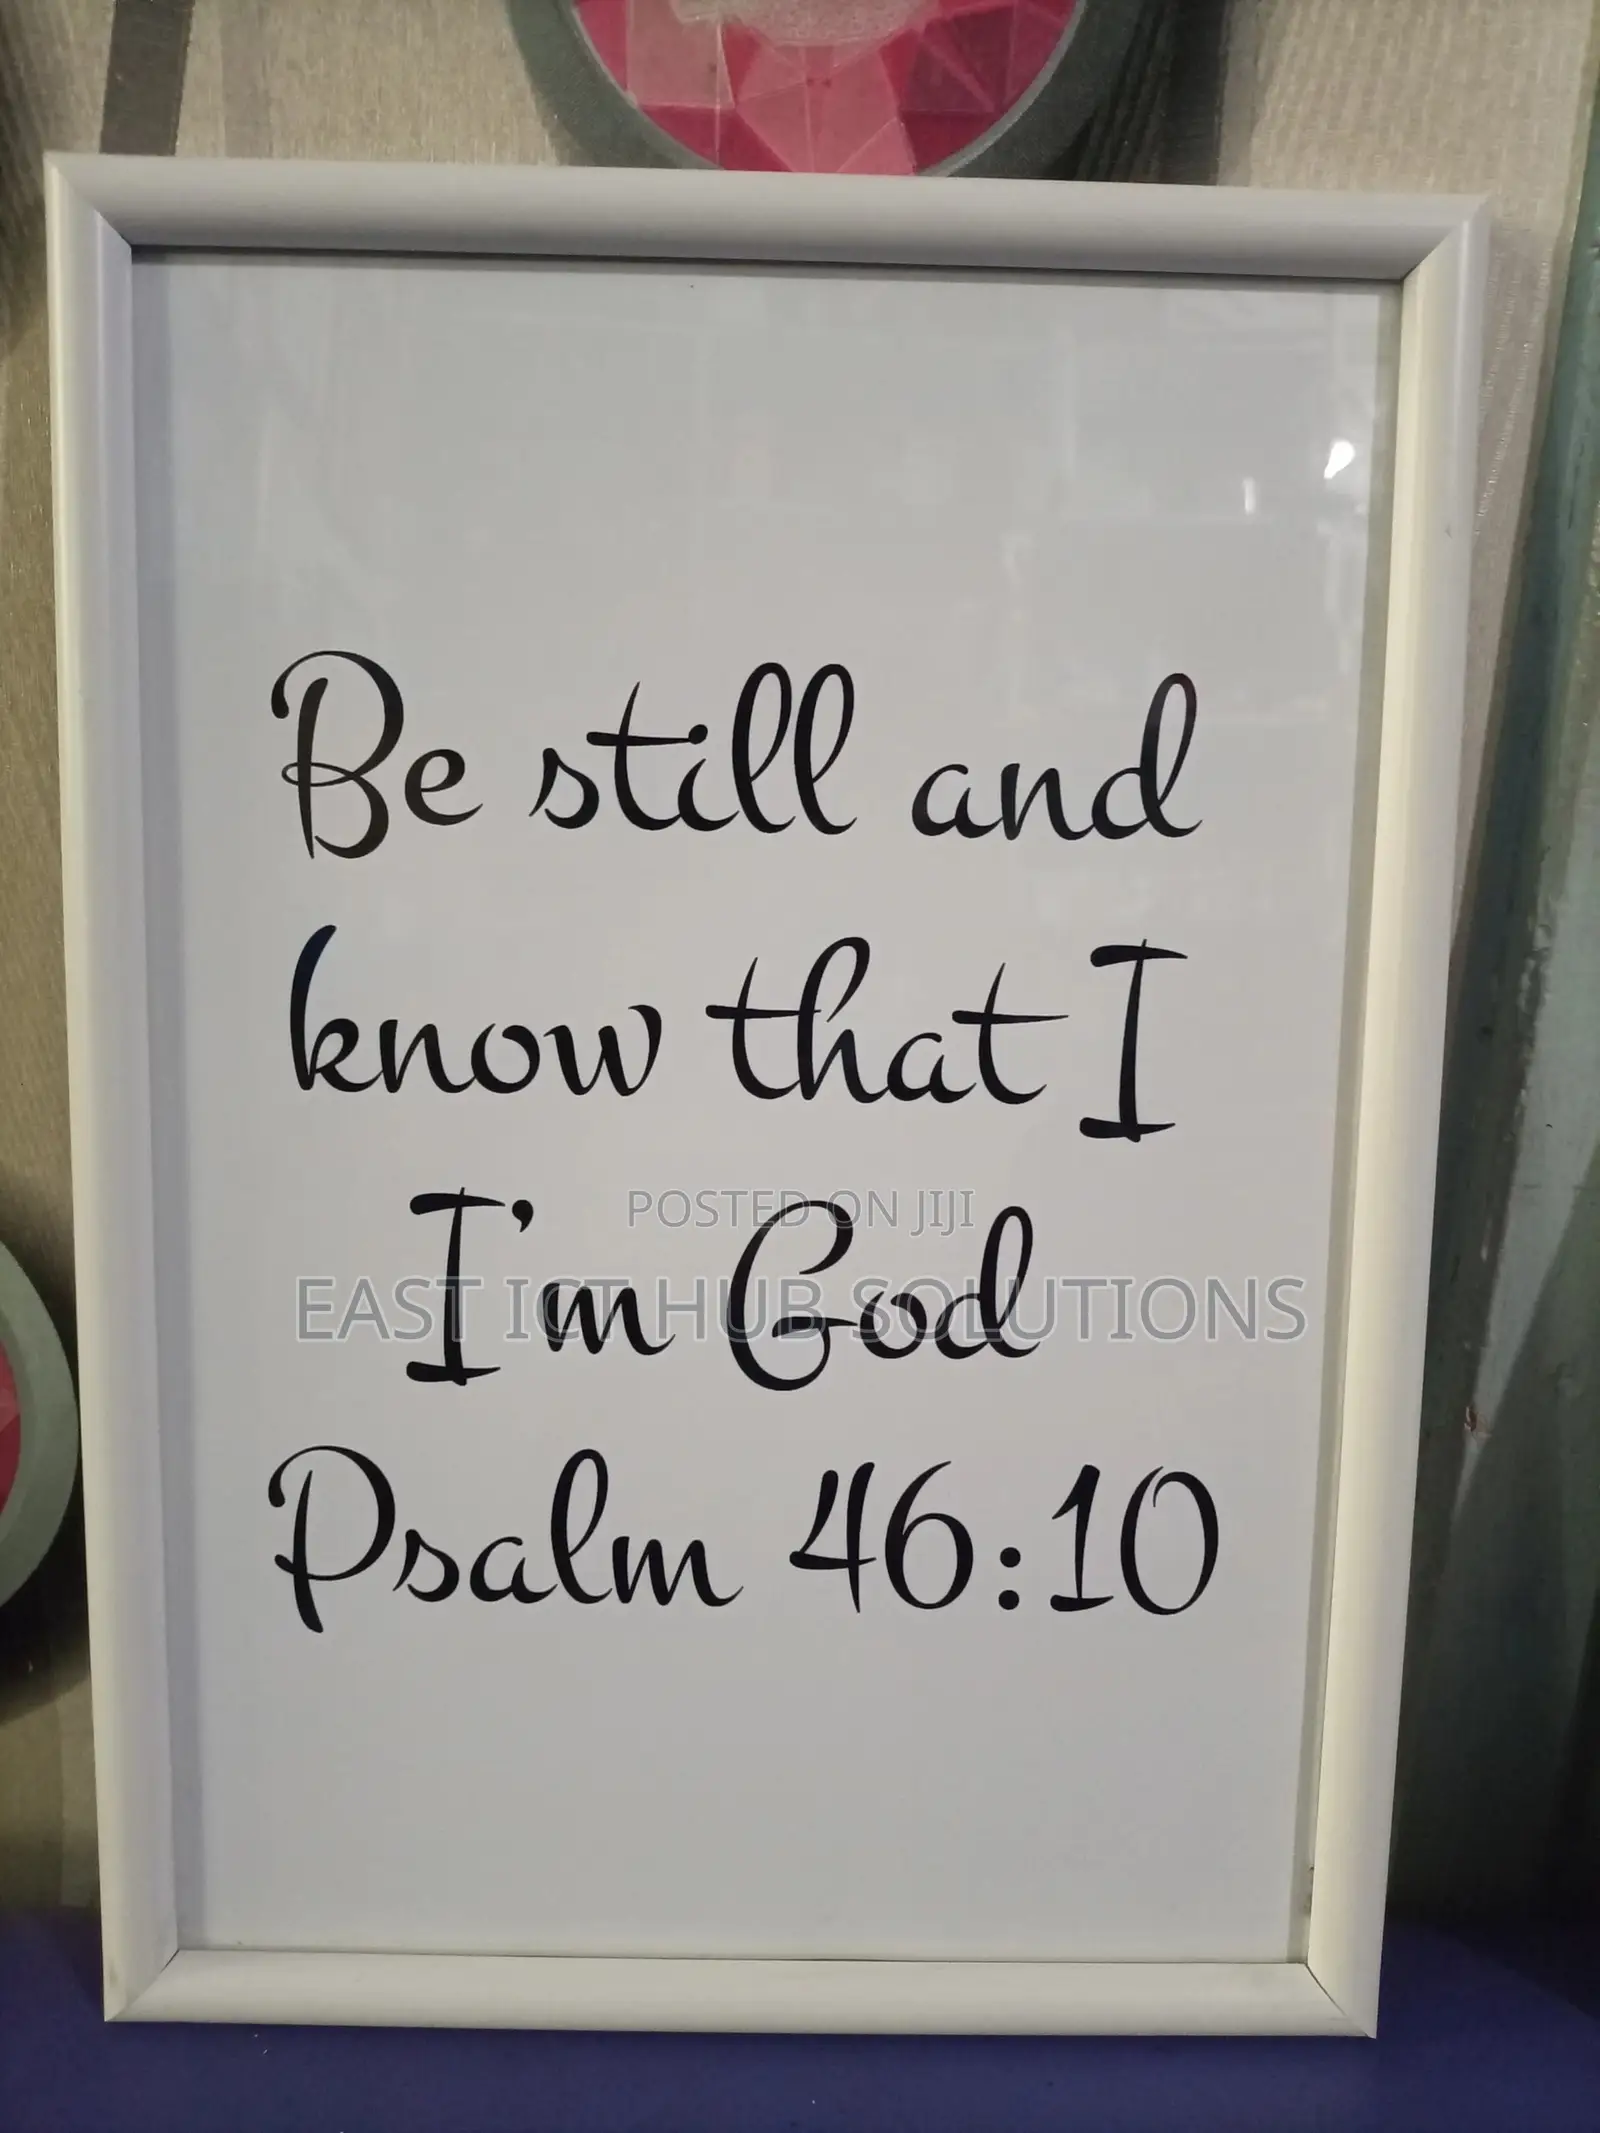 Be still and
know that I
I'm God
Psalm 46:10
POSTED ON JIJI
EAST ICT HUB SOLUTIONS